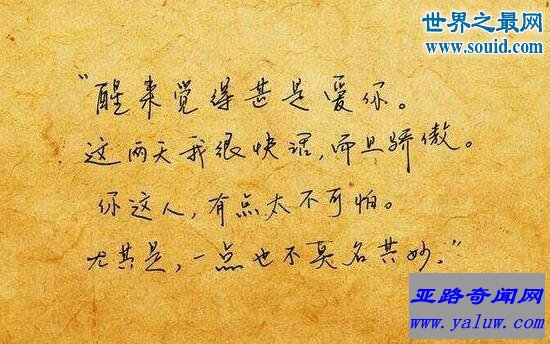 世界之最网
www.souid.com
“醒来觉得甚是爱你。
这两天我很快活，而且骄傲。
你这人，有点太不可怕。
尤其是，一点也不莫名其妙。”
亚路奇闻网
www.yaluw.com